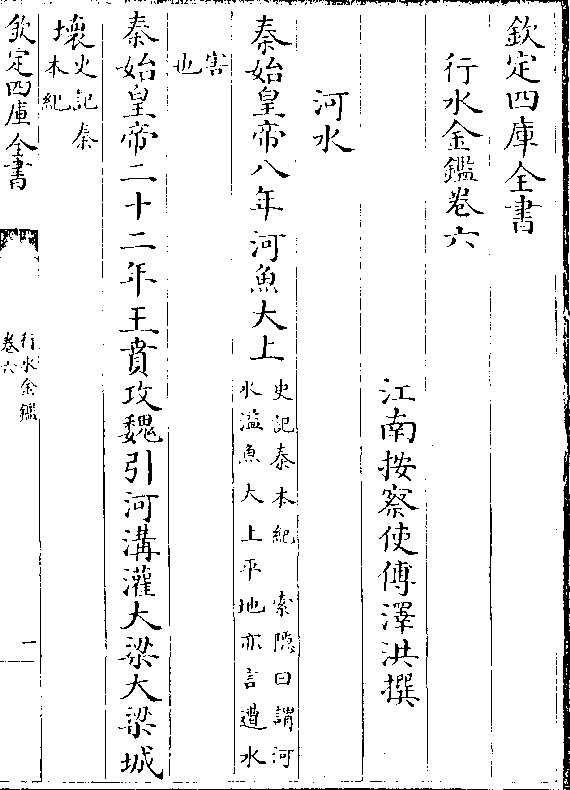 欽定四庫全書
行水金鑑卷六
江南按察使傅澤洪撰
河水
秦始皇帝八年河魚大上史記秦本紀 索隱曰謂河
水溢魚大上平地亦言遭水
害
也
秦始皇帝二十二年王賁攻魏引河溝灌大梁大梁城
壞史記秦
本紀
欽定四庫全書
行水金鑑
卷六
一